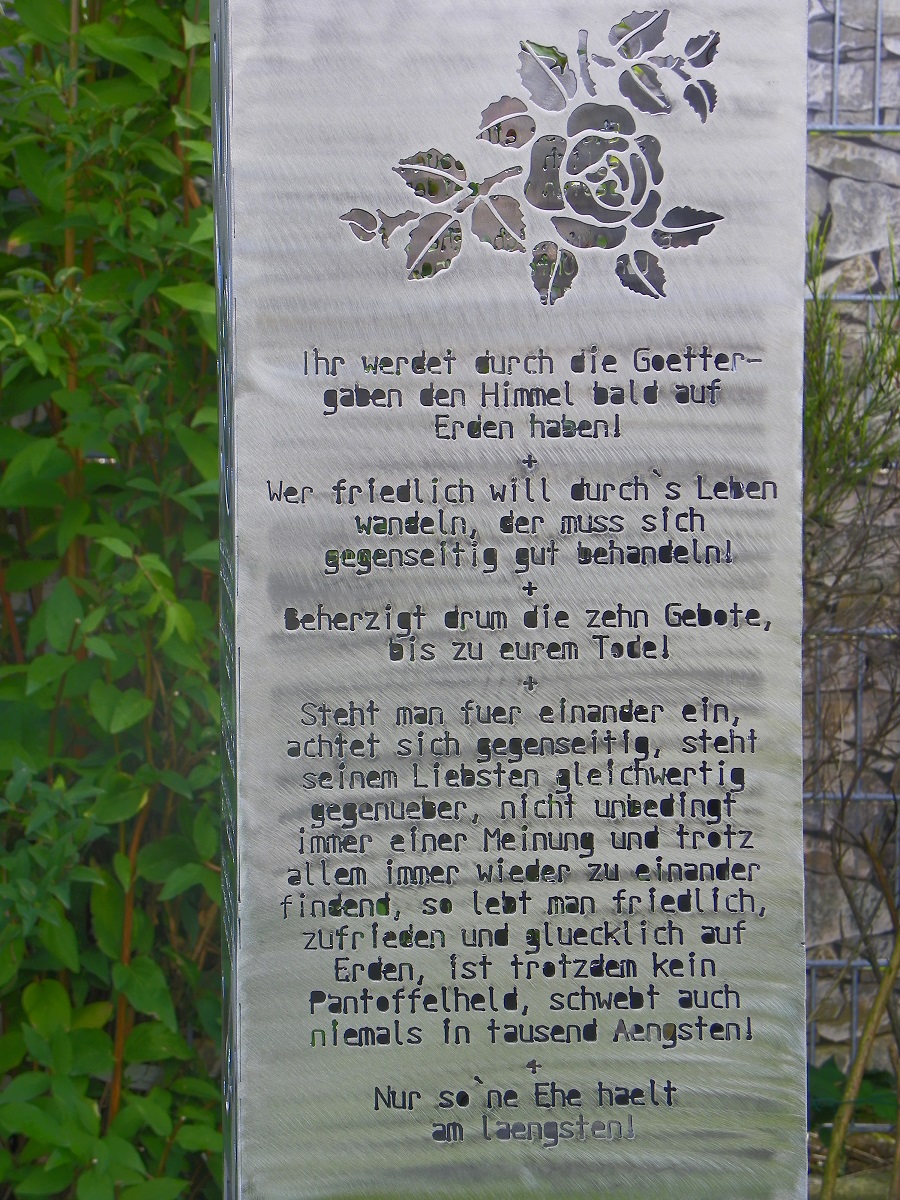 Ihr werdet durch die Goetter-
gaben den Himmel bald auf
Erden haben!
+
Wer friedlich will durch`s Leben
wandeln, der muss sich
gegenseitig gut behandeln!
+
Beherzigt drum die zehn Gebote,
bis zu eurem Tode!
+
Steht man fuer einander ein,
achtet sich gegenseitig, steht
seinem Liebsten gleichwertig
gegenueber, nicht unbedingt
immer einer Meinung und trotz
allem immer wieder zu einander
findend, so lebt man friedlich,
zufrieden und gluecklich auf
Erden, ist trotzdem kein
Pantoffelheld, schwebt auch
niemals in tausend Aengsten!
+
Nur so`ne Ehe haelt
am laengsten!